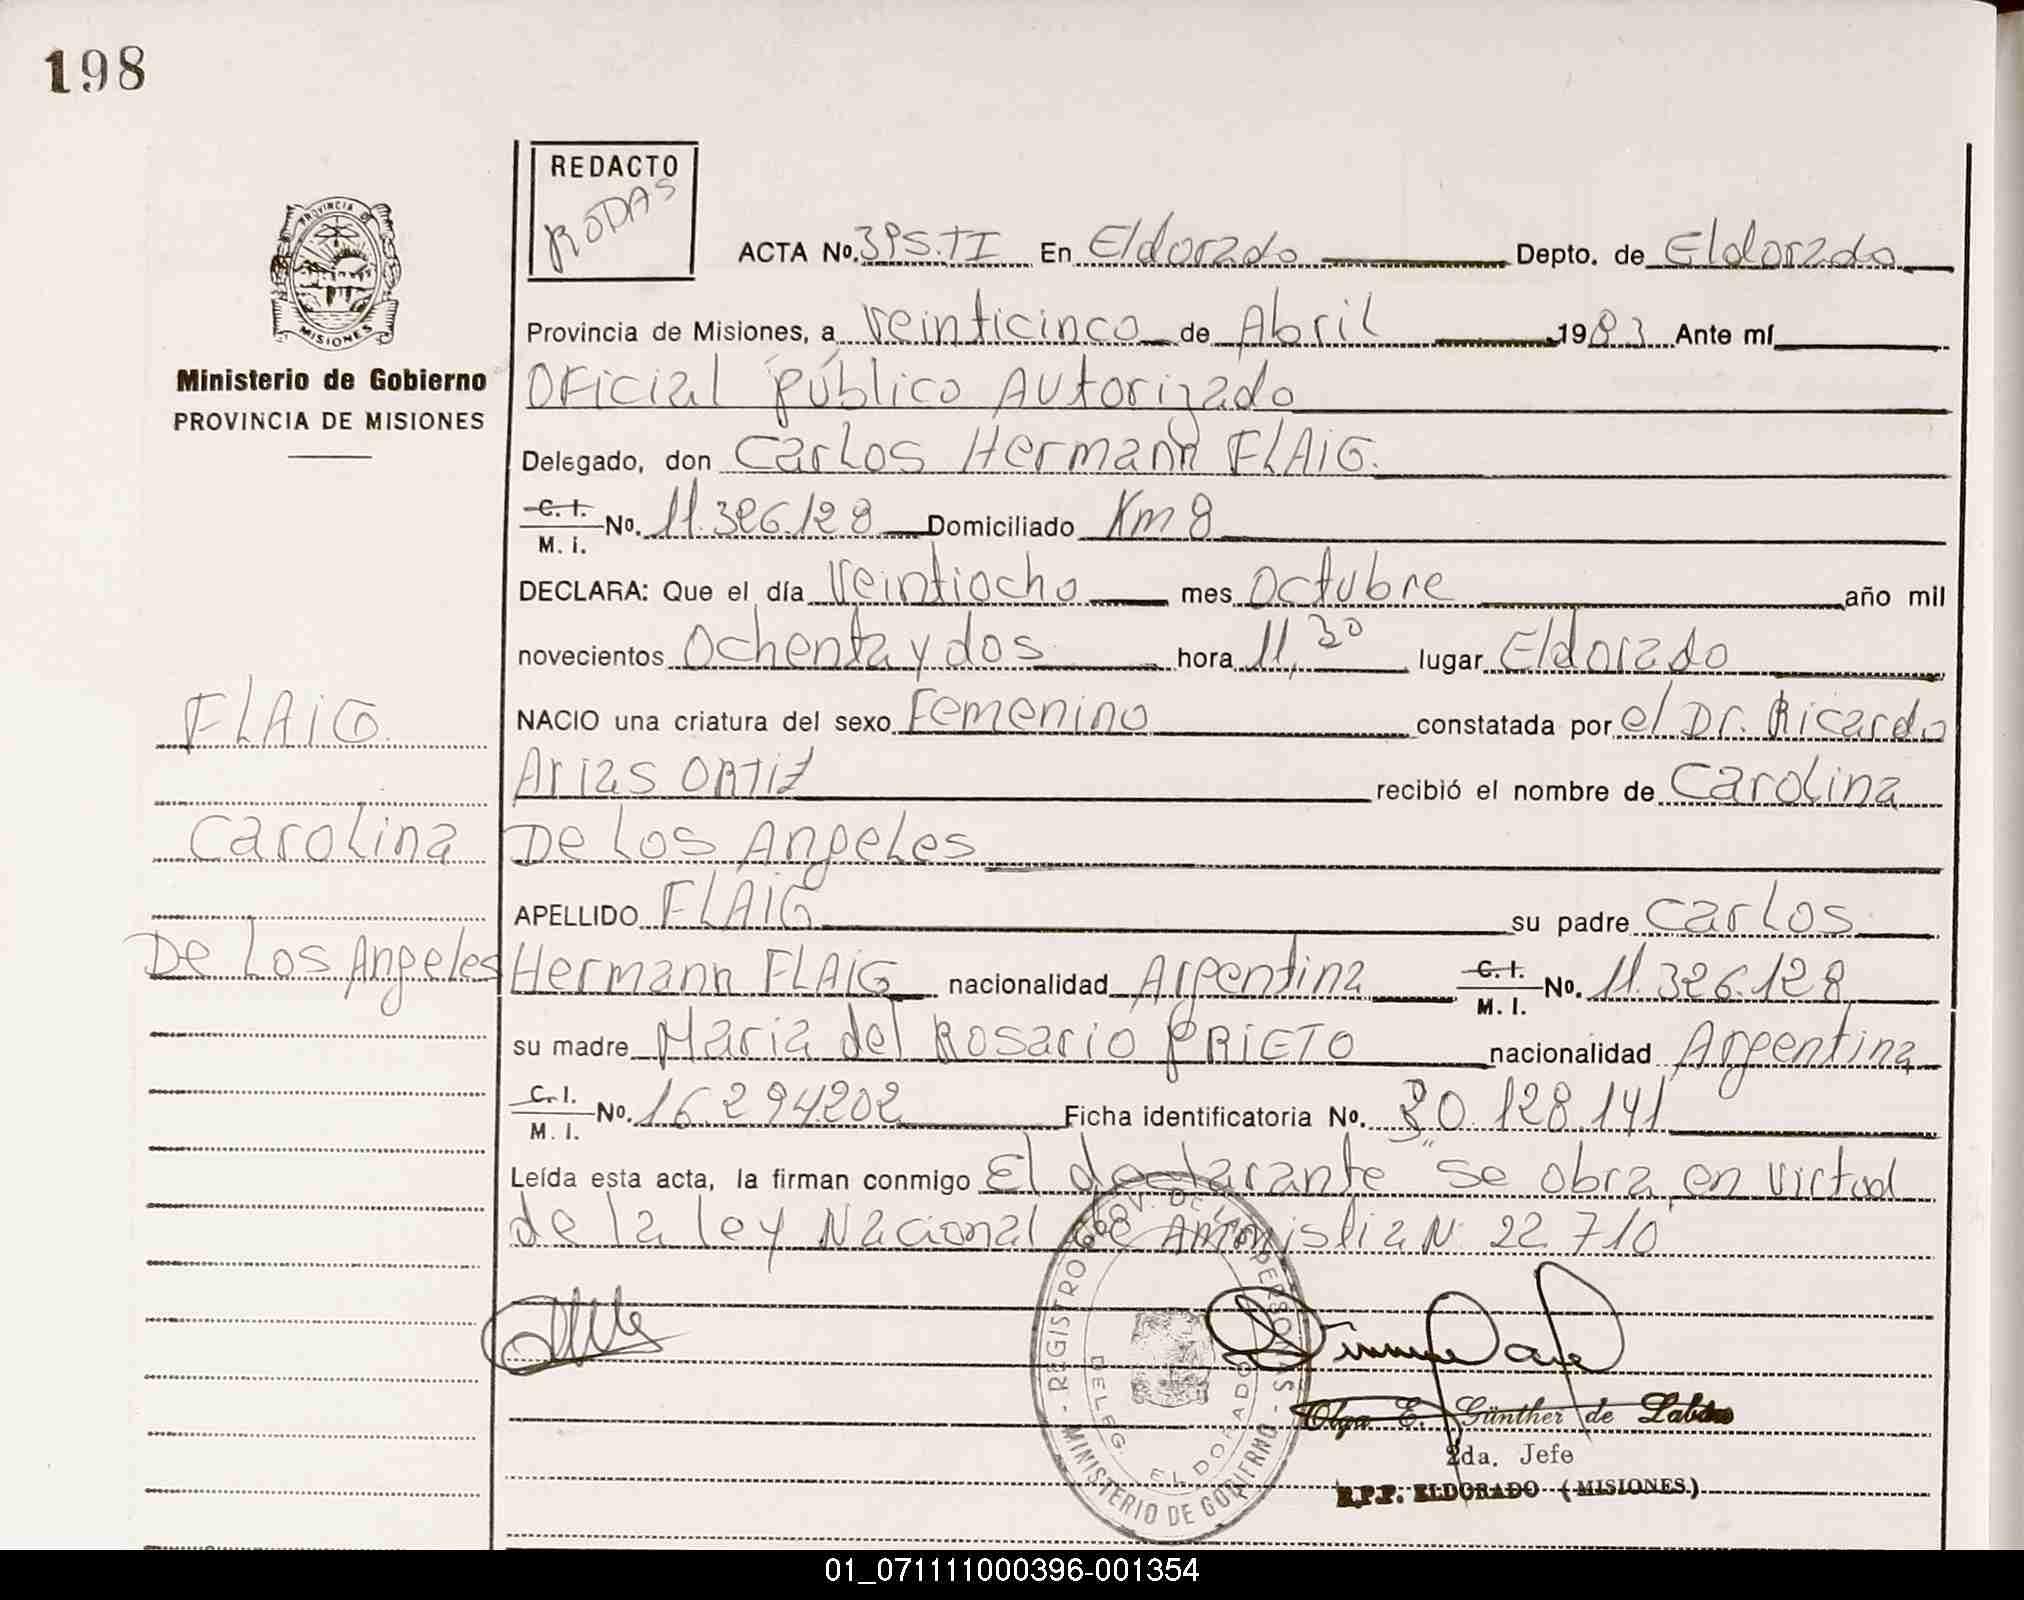 198
REDACTO
RODAS
PROVINCIA DE
MISIONES
Ministerio de Gobierno
PROVINCIA DE MISIONES
ACTA No. En Eldorado Depto. de Eldorado
Provincia de Misiones, a veinticinco de Abril 1983 Ante mí
Oficial público Autorizado
Delegado, don Carlos Hermann FLAIG.
C. I. M. i. No. 11.326.128 Domiciliado Km 8
DECLARA: Que el día Veintiocho mes Octubre año mil
novecientos Ochenta y dos hora 11,30 lugar Eldorado
NACIO una criatura del sexo Femenino constatada por el Dr. Ricardo
Arias ORTIZ recibió el nombre de Carolina
De Los Angeles
APELLIDO FLAIG su padre Carlos
Hermann FLAIG nacionalidad Argentina C. I. M. I. No. 11.326.128
su madre Maria del Rosario PRIETO nacionalidad Argentina
C. I. M. I. No. 16.294.202 Ficha identificatoria No. 30.128.141
Leída esta acta, la firman conmigo El declarante "se obra en virtud
de la ley Nacional de Amnistia N 22.710
FLAIG
Carolina
De Los Angeles
REGISTRO PROV. DE LAS PERSONAS - MINISTERIO DE GOBIERNO -
DELEG. ELDORADO
Olga E. Günther de
2da. Jefe
R.P.P. ELDORADO (MISIONES)
01_071111000396-001354